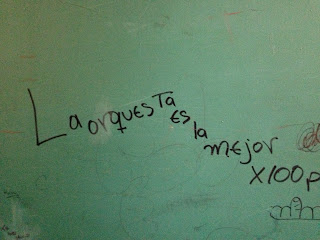 La orquesta
es
la
mejor
x100p